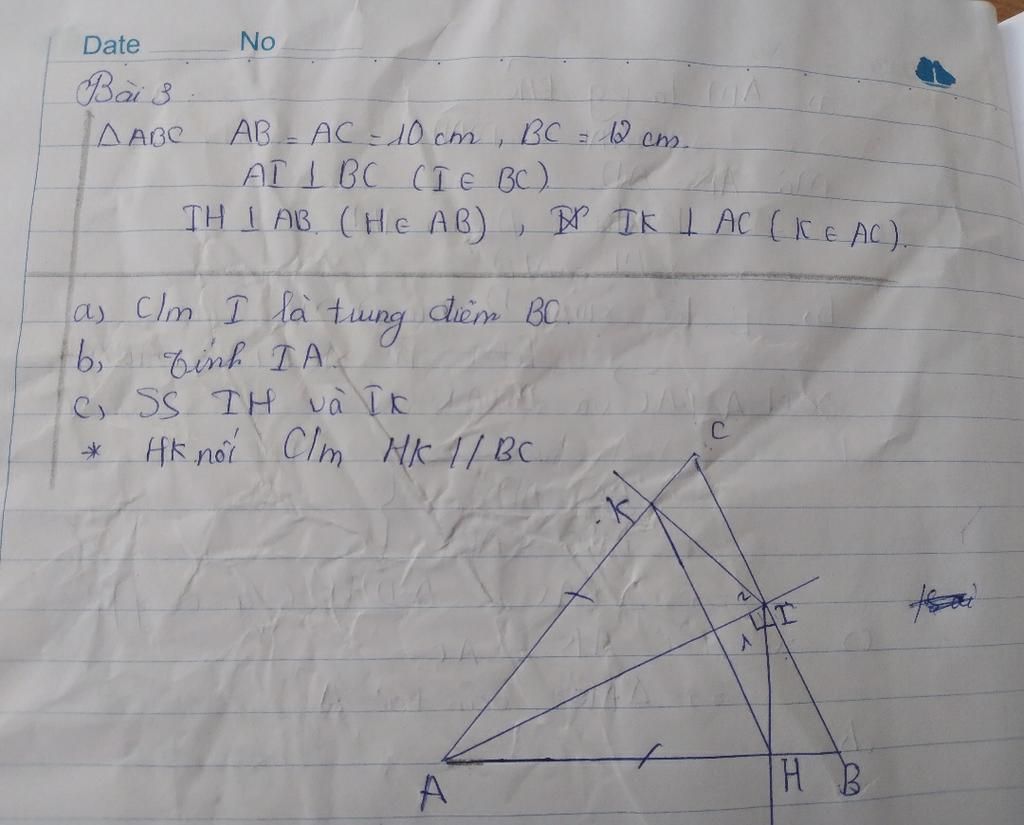 Date No
Bài 3
△ABC AB = AC = 10 cm, BC = 12 cm.
AI ⊥ BC (I ∈ BC)
IH ⊥ AB. (H ∈ AB), IK ⊥ AC (K ∈ AC).
a, C/m I là trung điểm BC.
b, Tính IA.
c, SS IH và IK
* HK nối C/m HK // BC
C
K
2
I
1
A
H B